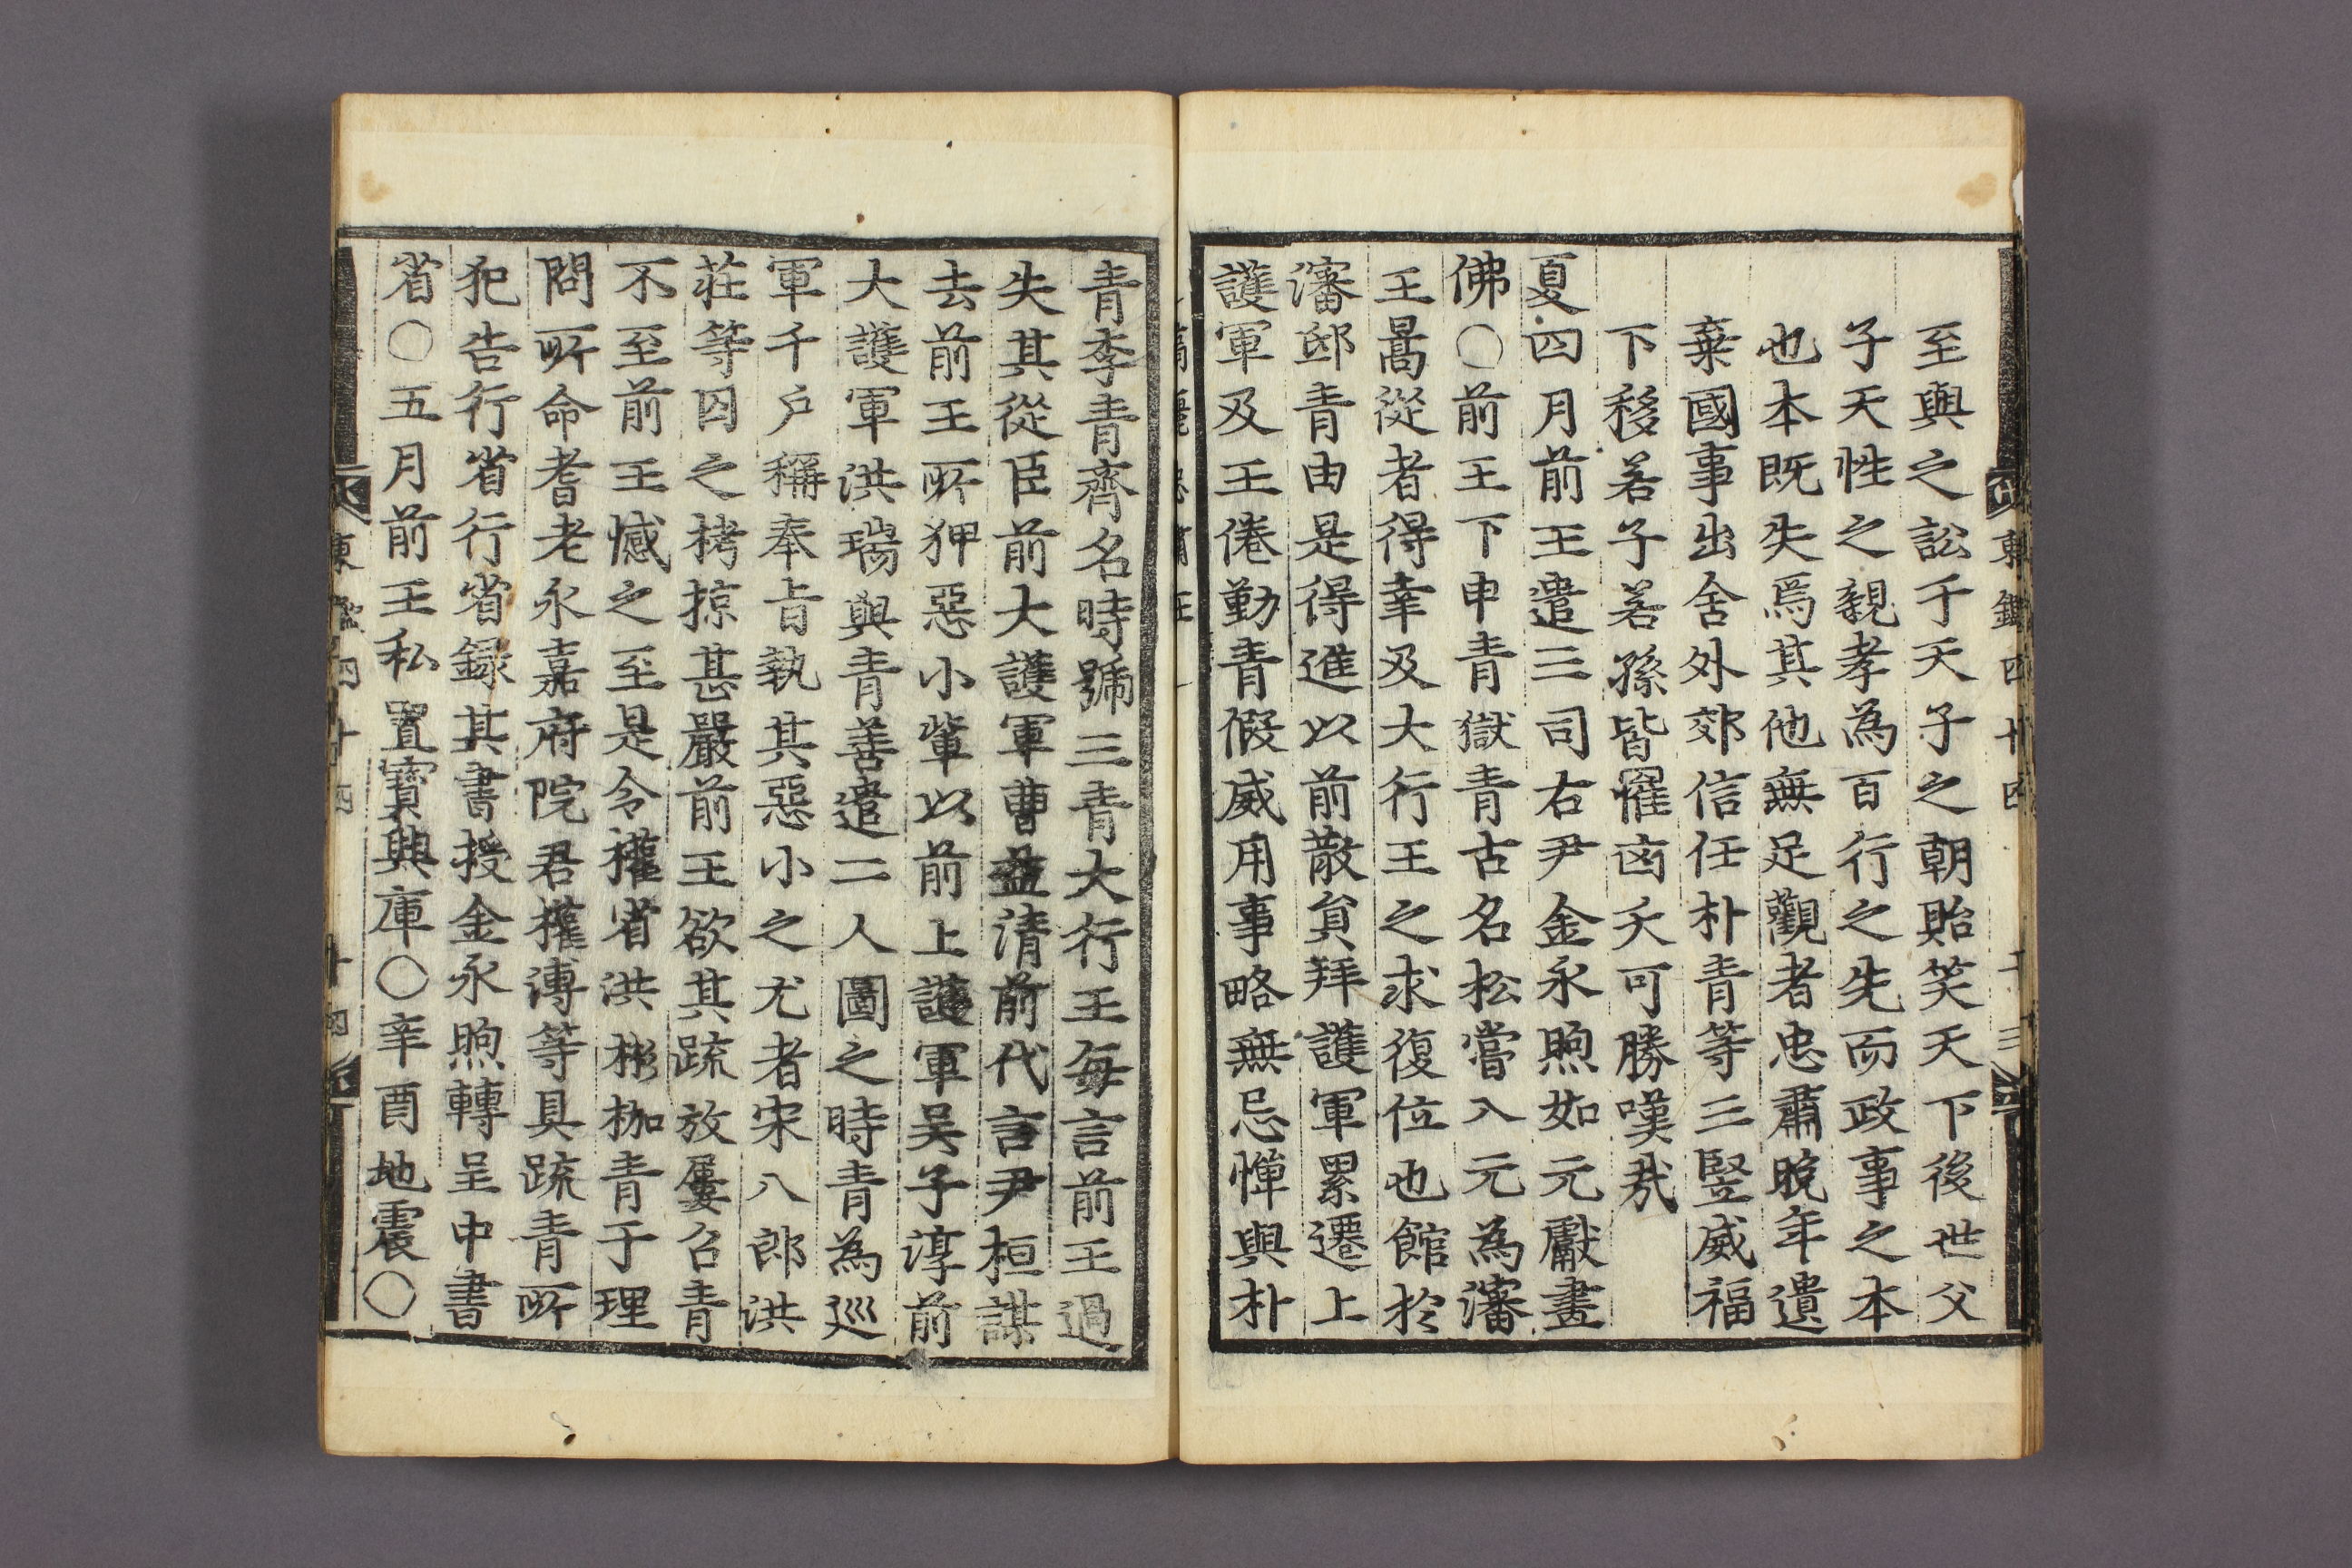 至與之訟于天子之朝貽笑天下後世父
子天性之親孝為百行之先而政事之本
也本既失焉其他無足觀者忠肅晚年遺
棄國事出舍外郊信任朴青等三竪威福
下移若子若孫皆罹凶夭可勝嘆㦲
夏四月前王遣三司右尹金永煦如元獻畫
佛〇前王下申青獄青古名松嘗入元為瀋
王暠從者得幸及大行王之求復位也館於
瀋邸青由是得進以前散貟拜護軍累遷上
護軍及王倦勤青假威用事略無忌憚與朴
青李青齊名時號三青大行王每言前王過
失其從臣前大護軍曹益清前代言尹桓謀
去前王所狎惡小輩以前上護軍吴子淳前
大護軍洪瑞與青善遣二人圖之時青為巡
軍千户稱奉旨執其惡小之尤者宋八郎洪
莊等囚之栲掠甚嚴前王欲其疏放屢召青
不至前王憾之至是令權省洪彬枷青于理
問所命耆老永嘉府院君權溥等具疏青所
犯告行省行省録其書授金永煦轉呈中書
省〇五月前王私置寶興庫〇辛酉地震〇
東鑑四十四
十四